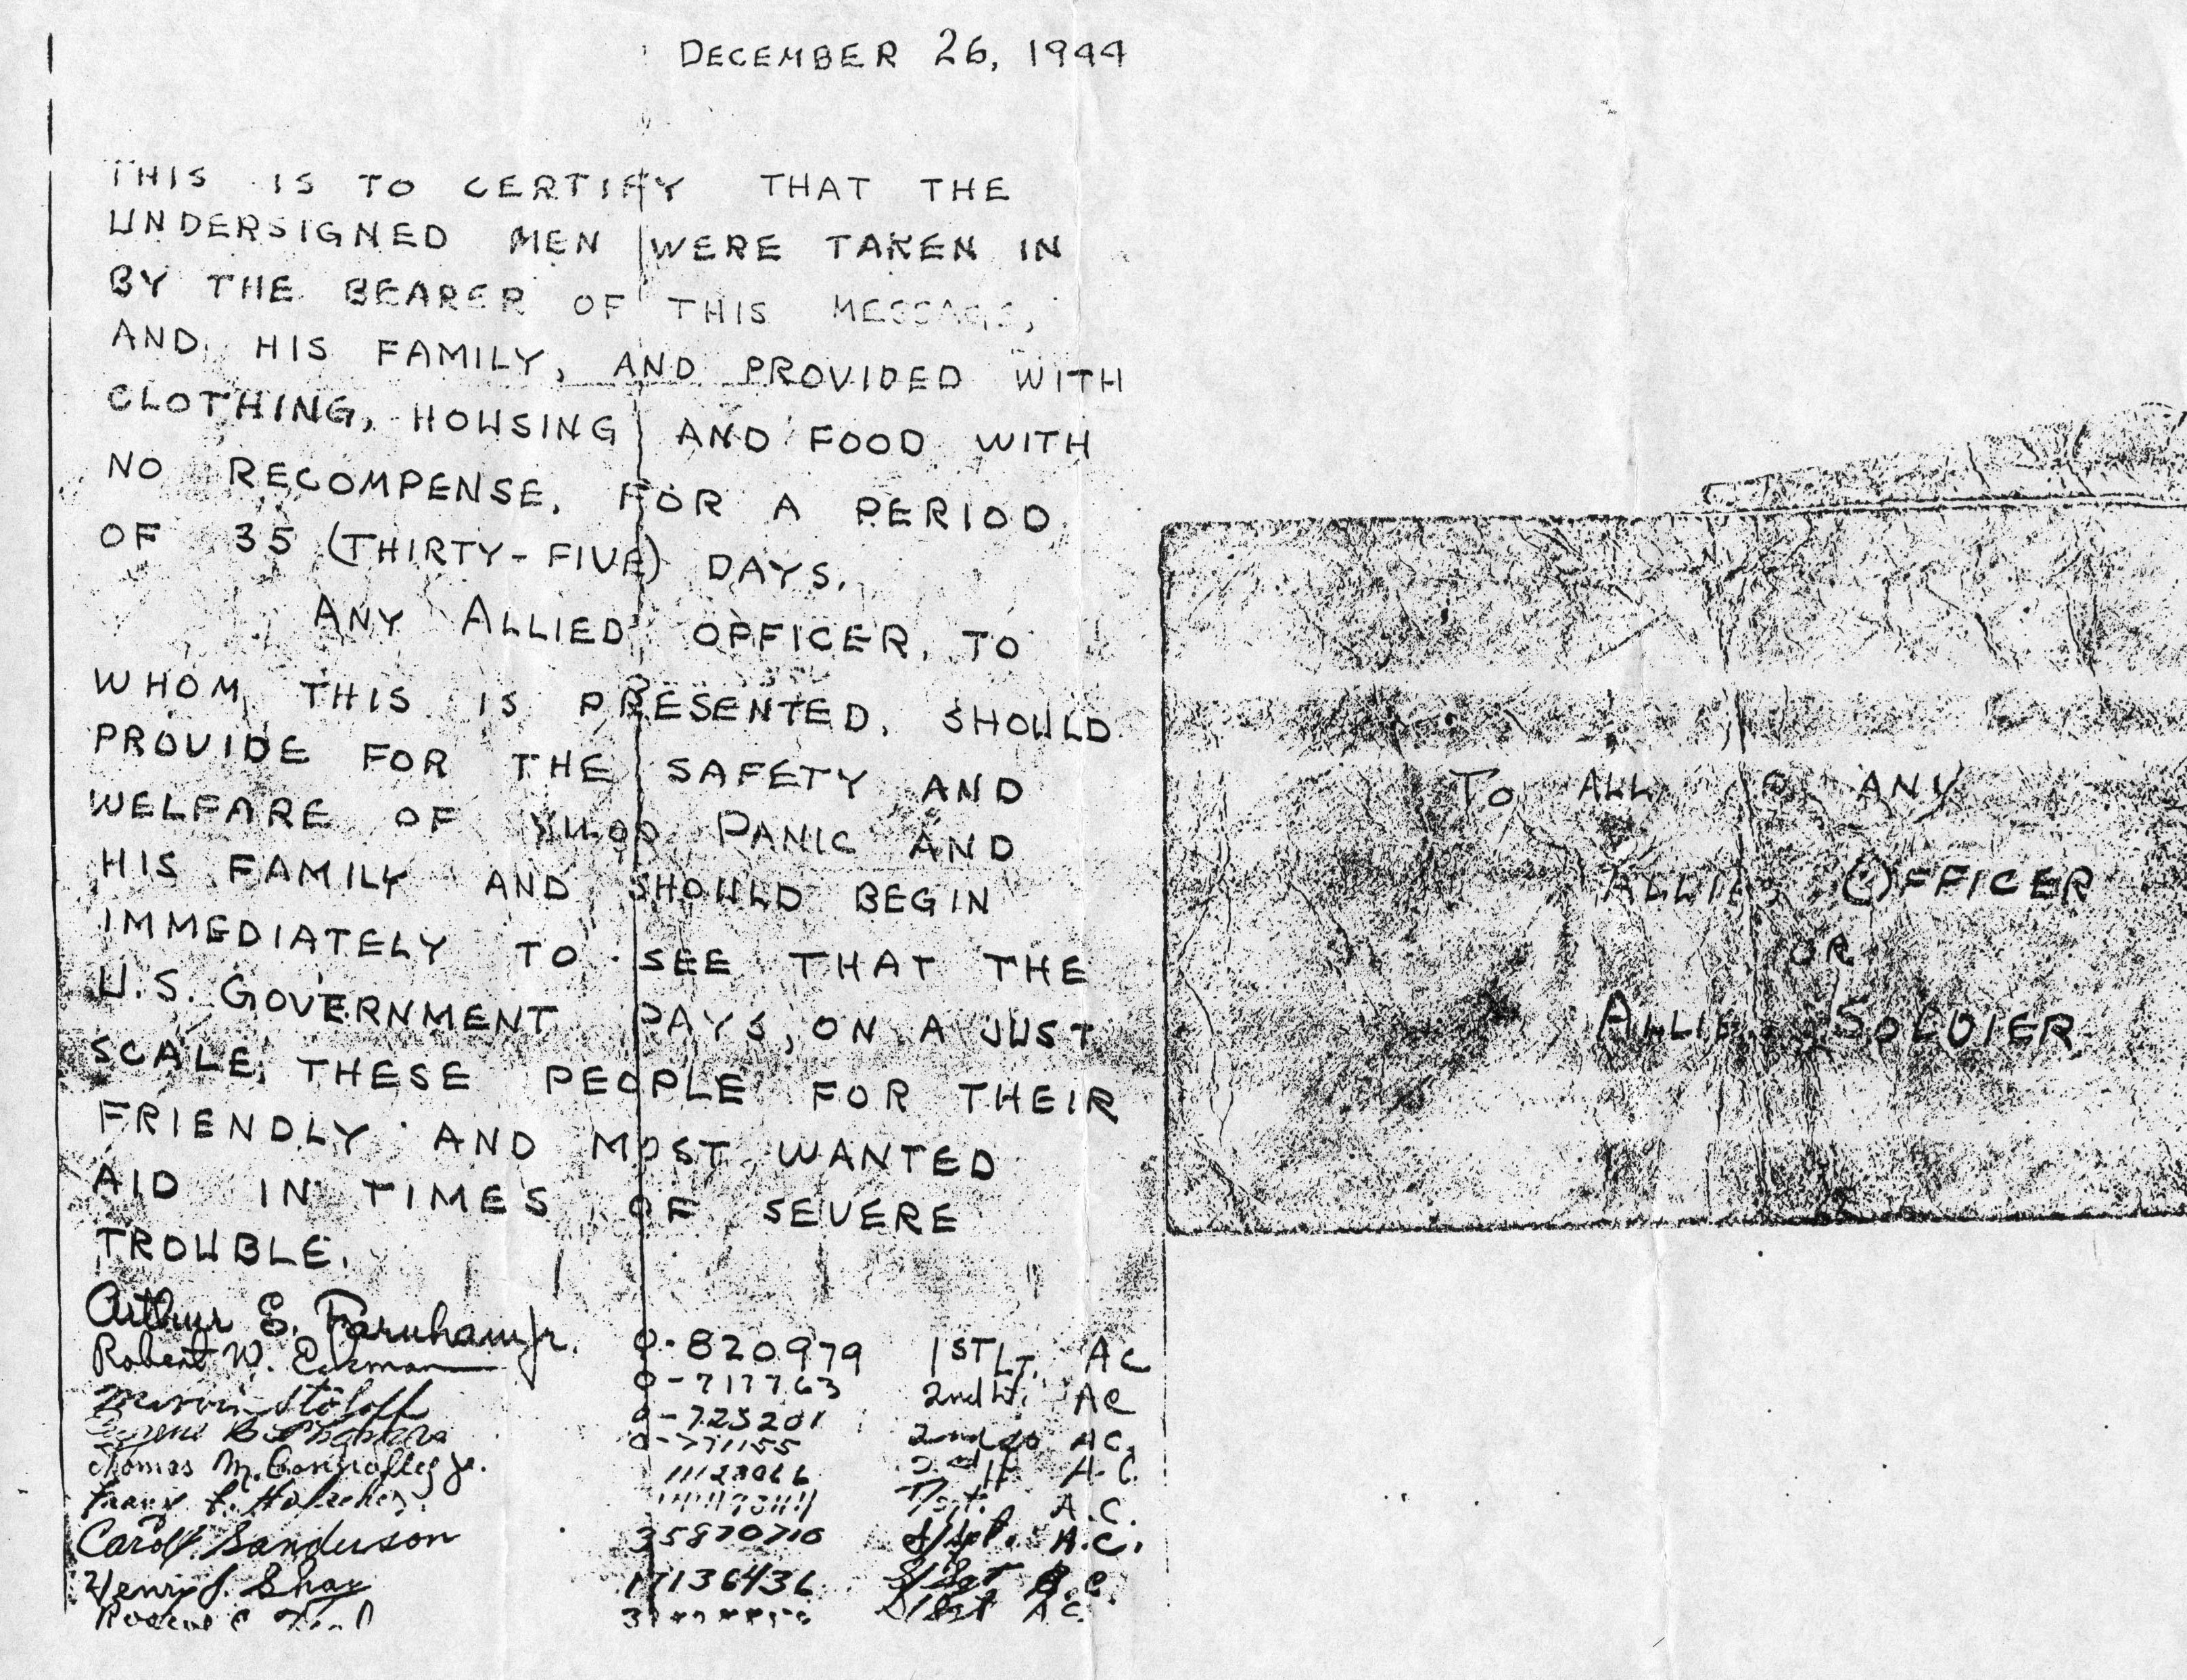 DECEMBER 26, 1944
THIS IS TO CERTIFY THAT THE
UNDERSIGNED MEN WERE TAKEN IN
BY THE BEARER OF THIS MESSAGE,
AND HIS FAMILY, AND PROVIDED WITH
CLOTHING, HOUSING AND FOOD WITH
NO RECOMPENSE, FOR A PERIOD
OF 35 (THIRTY-FIVE) DAYS.
ANY ALLIED OFFICER, TO
WHOM THIS IS PRESENTED, SHOULD
PROVIDE FOR THE SAFETY AND
WELFARE OF PANIC AND
HIS FAMILY AND SHOULD BEGIN
IMMEDIATELY TO SEE THAT THE
U.S. GOVERNMENT PAYS, ON A JUST
SCALE, THESE PEOPLE FOR THEIR
FRIENDLY AND MOST WANTED
AID IN TIMES OF SEVERE
TROUBLE.
Arthur E. Farnham Jr. O-820979 1ST LT. AC
Robert W. O-717763 2nd Lt. AC
Marvin Stoloff 2nd AC.
O-771155 A.C.
Thomas M. Connolly Jr. A.C.
Carol Sanderson 35870710 S/Sgt. A.C.
Henry J. Shay 17136436 S/Sgt A.C.
S/Sgt A.C.
TO ALL OR ANY
ALLIED OFFICER
OR
ALLIED SOLDIER